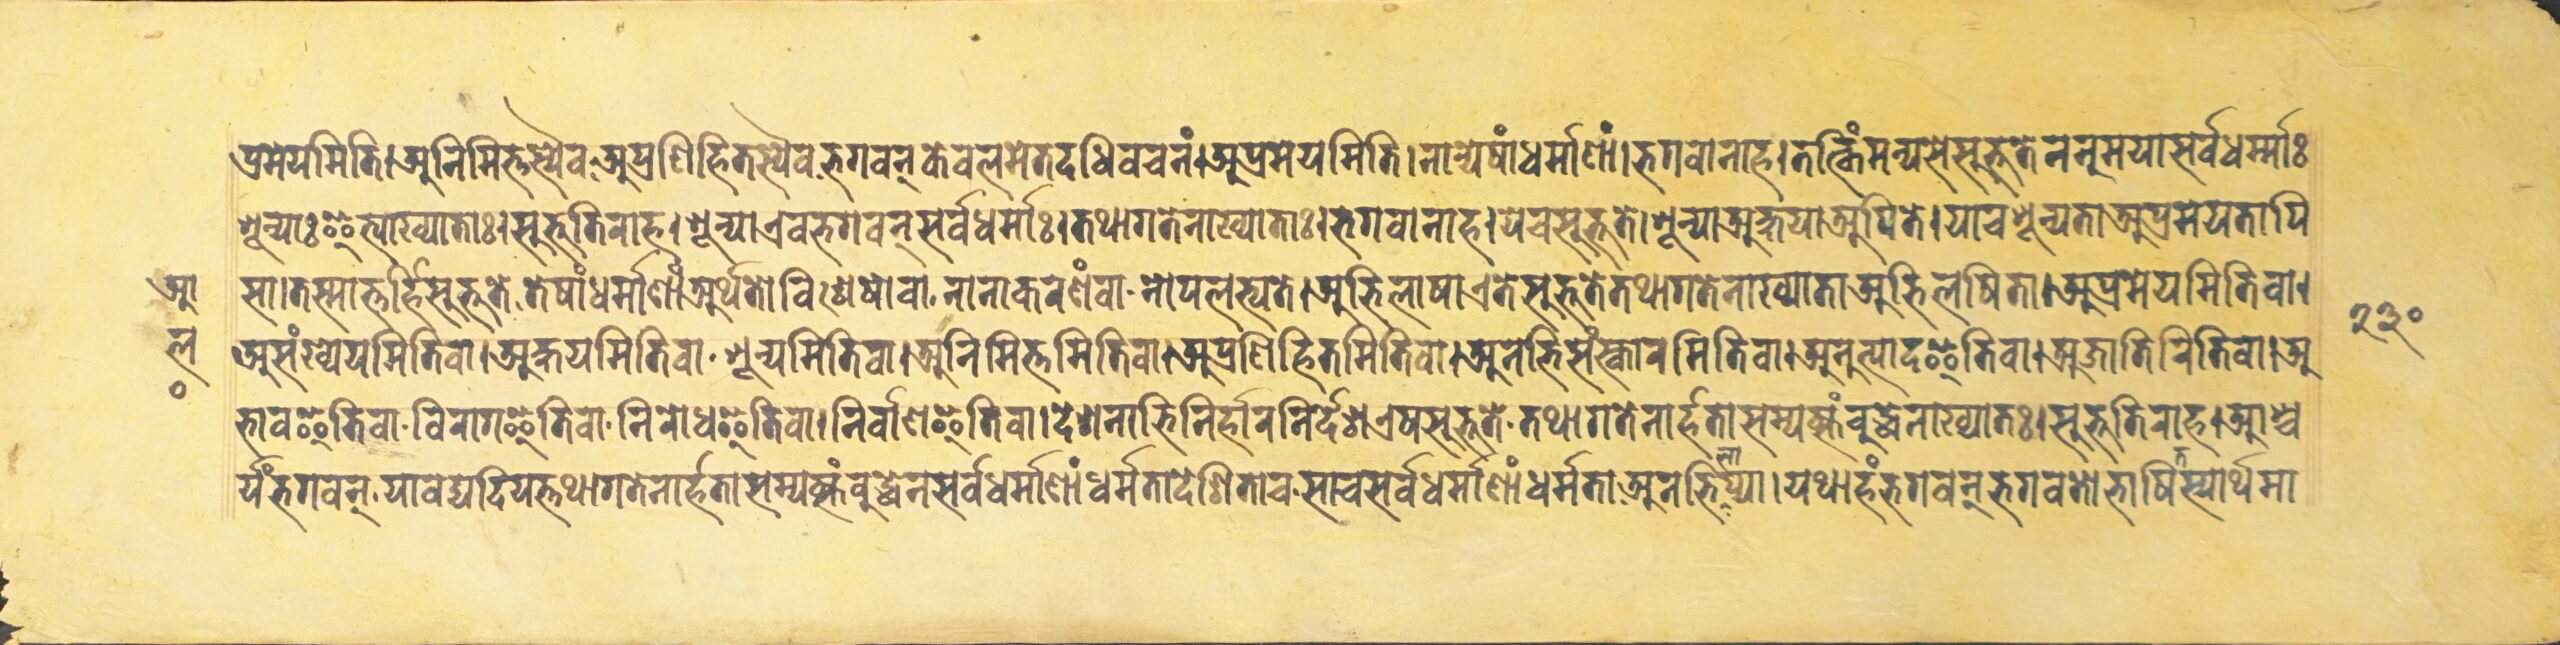 प्रमेयमिति।अनिमित्तस्यैव.अप्रणिहितस्यैव.भगवन्केवलमेतदधिवचनं।अप्रमेयमिति।नान्येषांधर्माणां।भगवानाह।तत्किंमन्यसेसुभुतेननुमयासर्वधर्म्माः
शून्याःइत्याख्याताः।सुभुतिराह।शून्याएवभगवन्सर्वधर्माः।तथागतेनाख्याताः।भगवानाह।येचसुभूते।शून्याअक्षयाअपिते।याचशून्यताअप्रमेयतापि
आ
सा।तस्मात्तर्हिसुभुते.तेषांधर्माणांअर्थतोविशेषोवा.नानाकरणंवा.नोपलभ्यते।अभिलाषाएतेसुभूतेतथागतेनाख्याताअभिलषिता।अप्रमेयमितिवा।
२३०
ल
असंख्येयमितिवा।अक्षयमितिवा.शून्यमितिवा।अनिमित्तमितिवा।अप्रणिहितमितिवा।अनभिसंस्कारमितिवा।अनुत्पादइतिवा।अजातिरितिवा।अ
०
भावइतिवा.विरागइतिवा.निरोधइतिवा।निर्वाणइतिवा।देशनाभिनिर्हारनिर्देशएषसुभूते.तथागतेनार्हतासम्यक्संबुद्धेनाख्यातः।सुभुतिराह।आश्च
र्यंभगवन्.यावेद्यदियत्तथागतेनार्हतासम्यक्संबुद्धेनसर्वधर्माणांधर्मतादेशिताच.साचसर्वधर्माणांधर्मताअनभिलाप्या।यथाहंभगवन्भगवतोभाषितस्यार्थमा